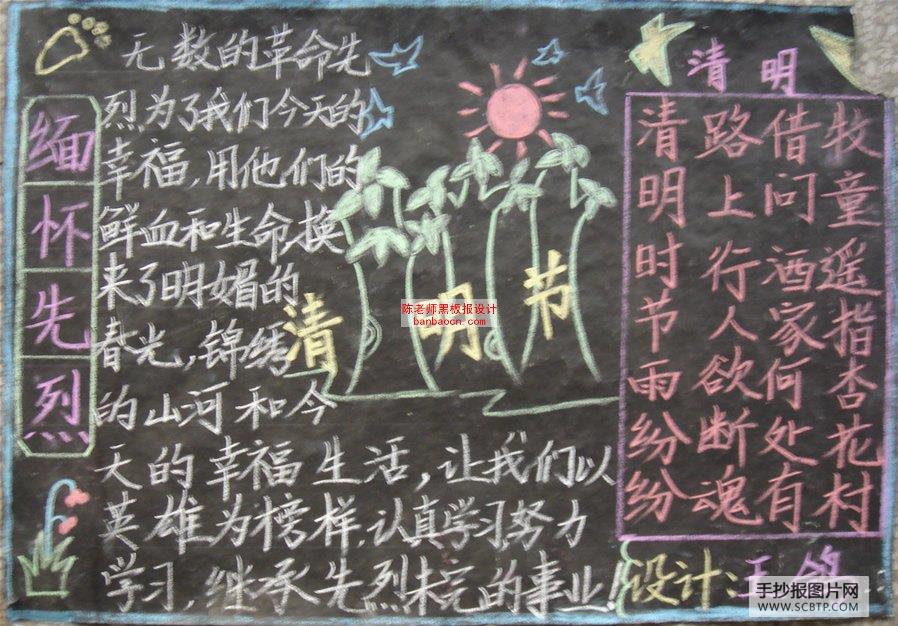 缅怀先烈
无数的革命先
烈为了我们今天的
幸福,用他们的
鲜血和生命,换
来了明媚的
春光,锦绣
的山河和今
天的幸福生活,让我们以
英雄为榜样,认真学习努力
学习,继承先烈未完的事业!
清明节
陈老师黑板报设计
banbaocn.com
清明
清明时节雨纷纷
路上行人欲断魂
借问酒家何处有
牧童遥指杏花村
设计:王
手抄报图片网
WWW.SCBTP.COM